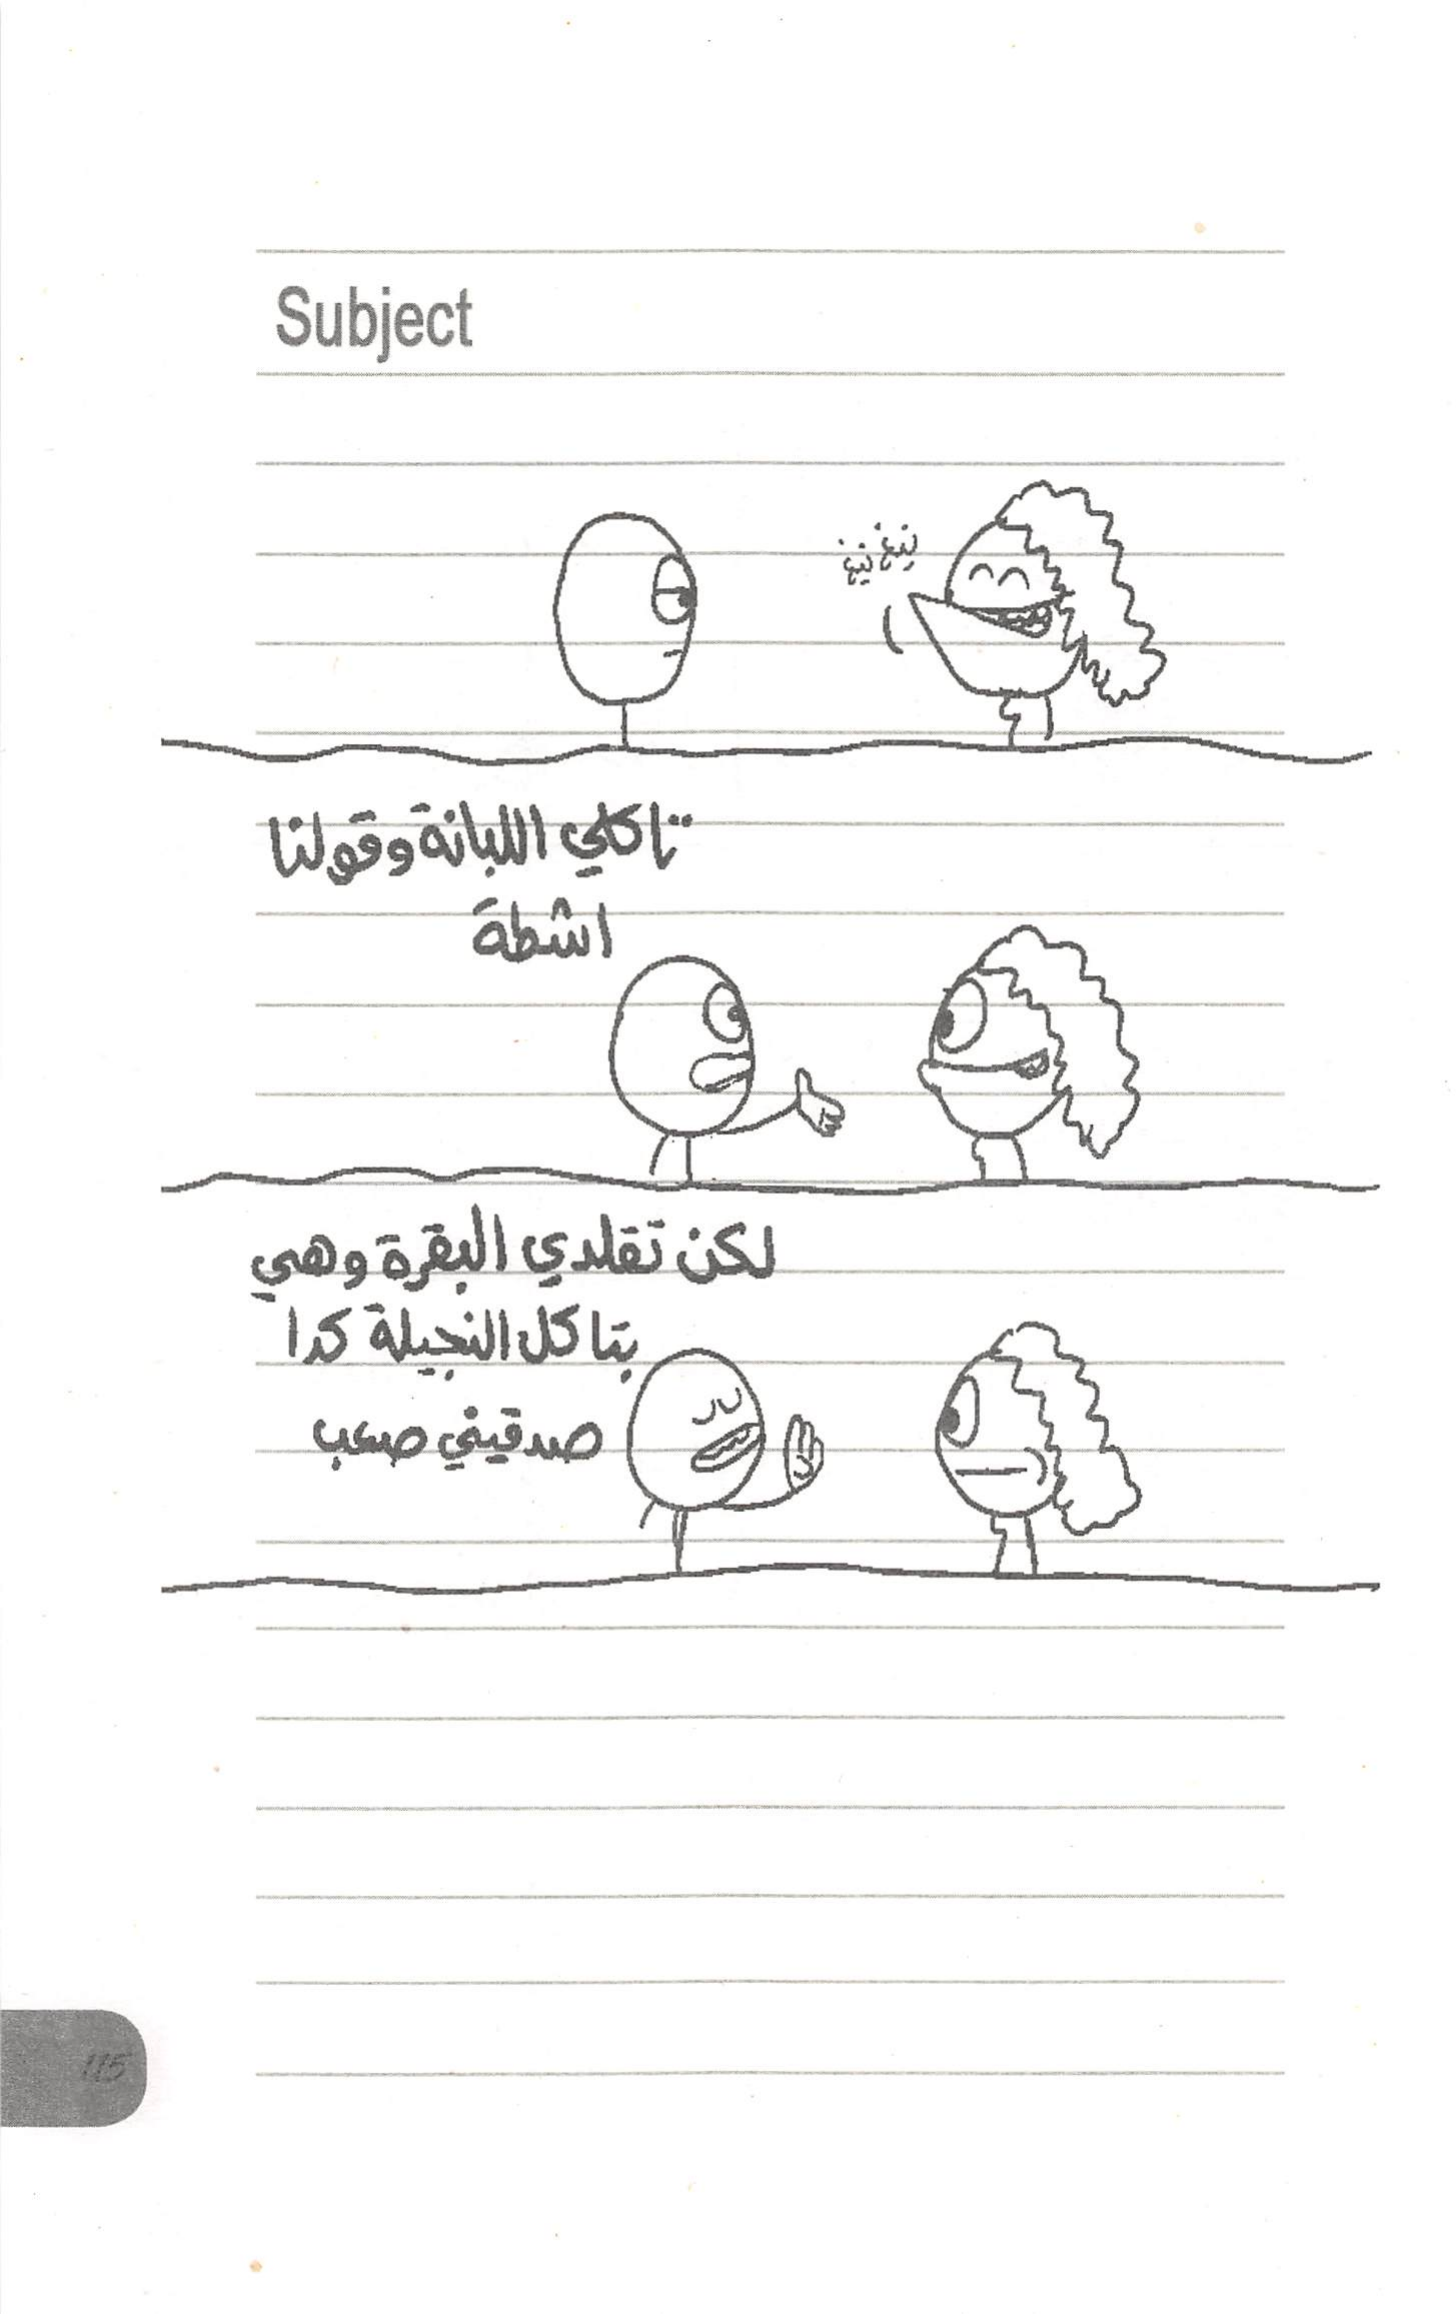 Subject
نيغ نيغ
تاكلي اللبانة وقولنا
اشطة
لكن تقلدي البقرة وهي
بتاكل النجيلة كدا
صدقيني صعب
115